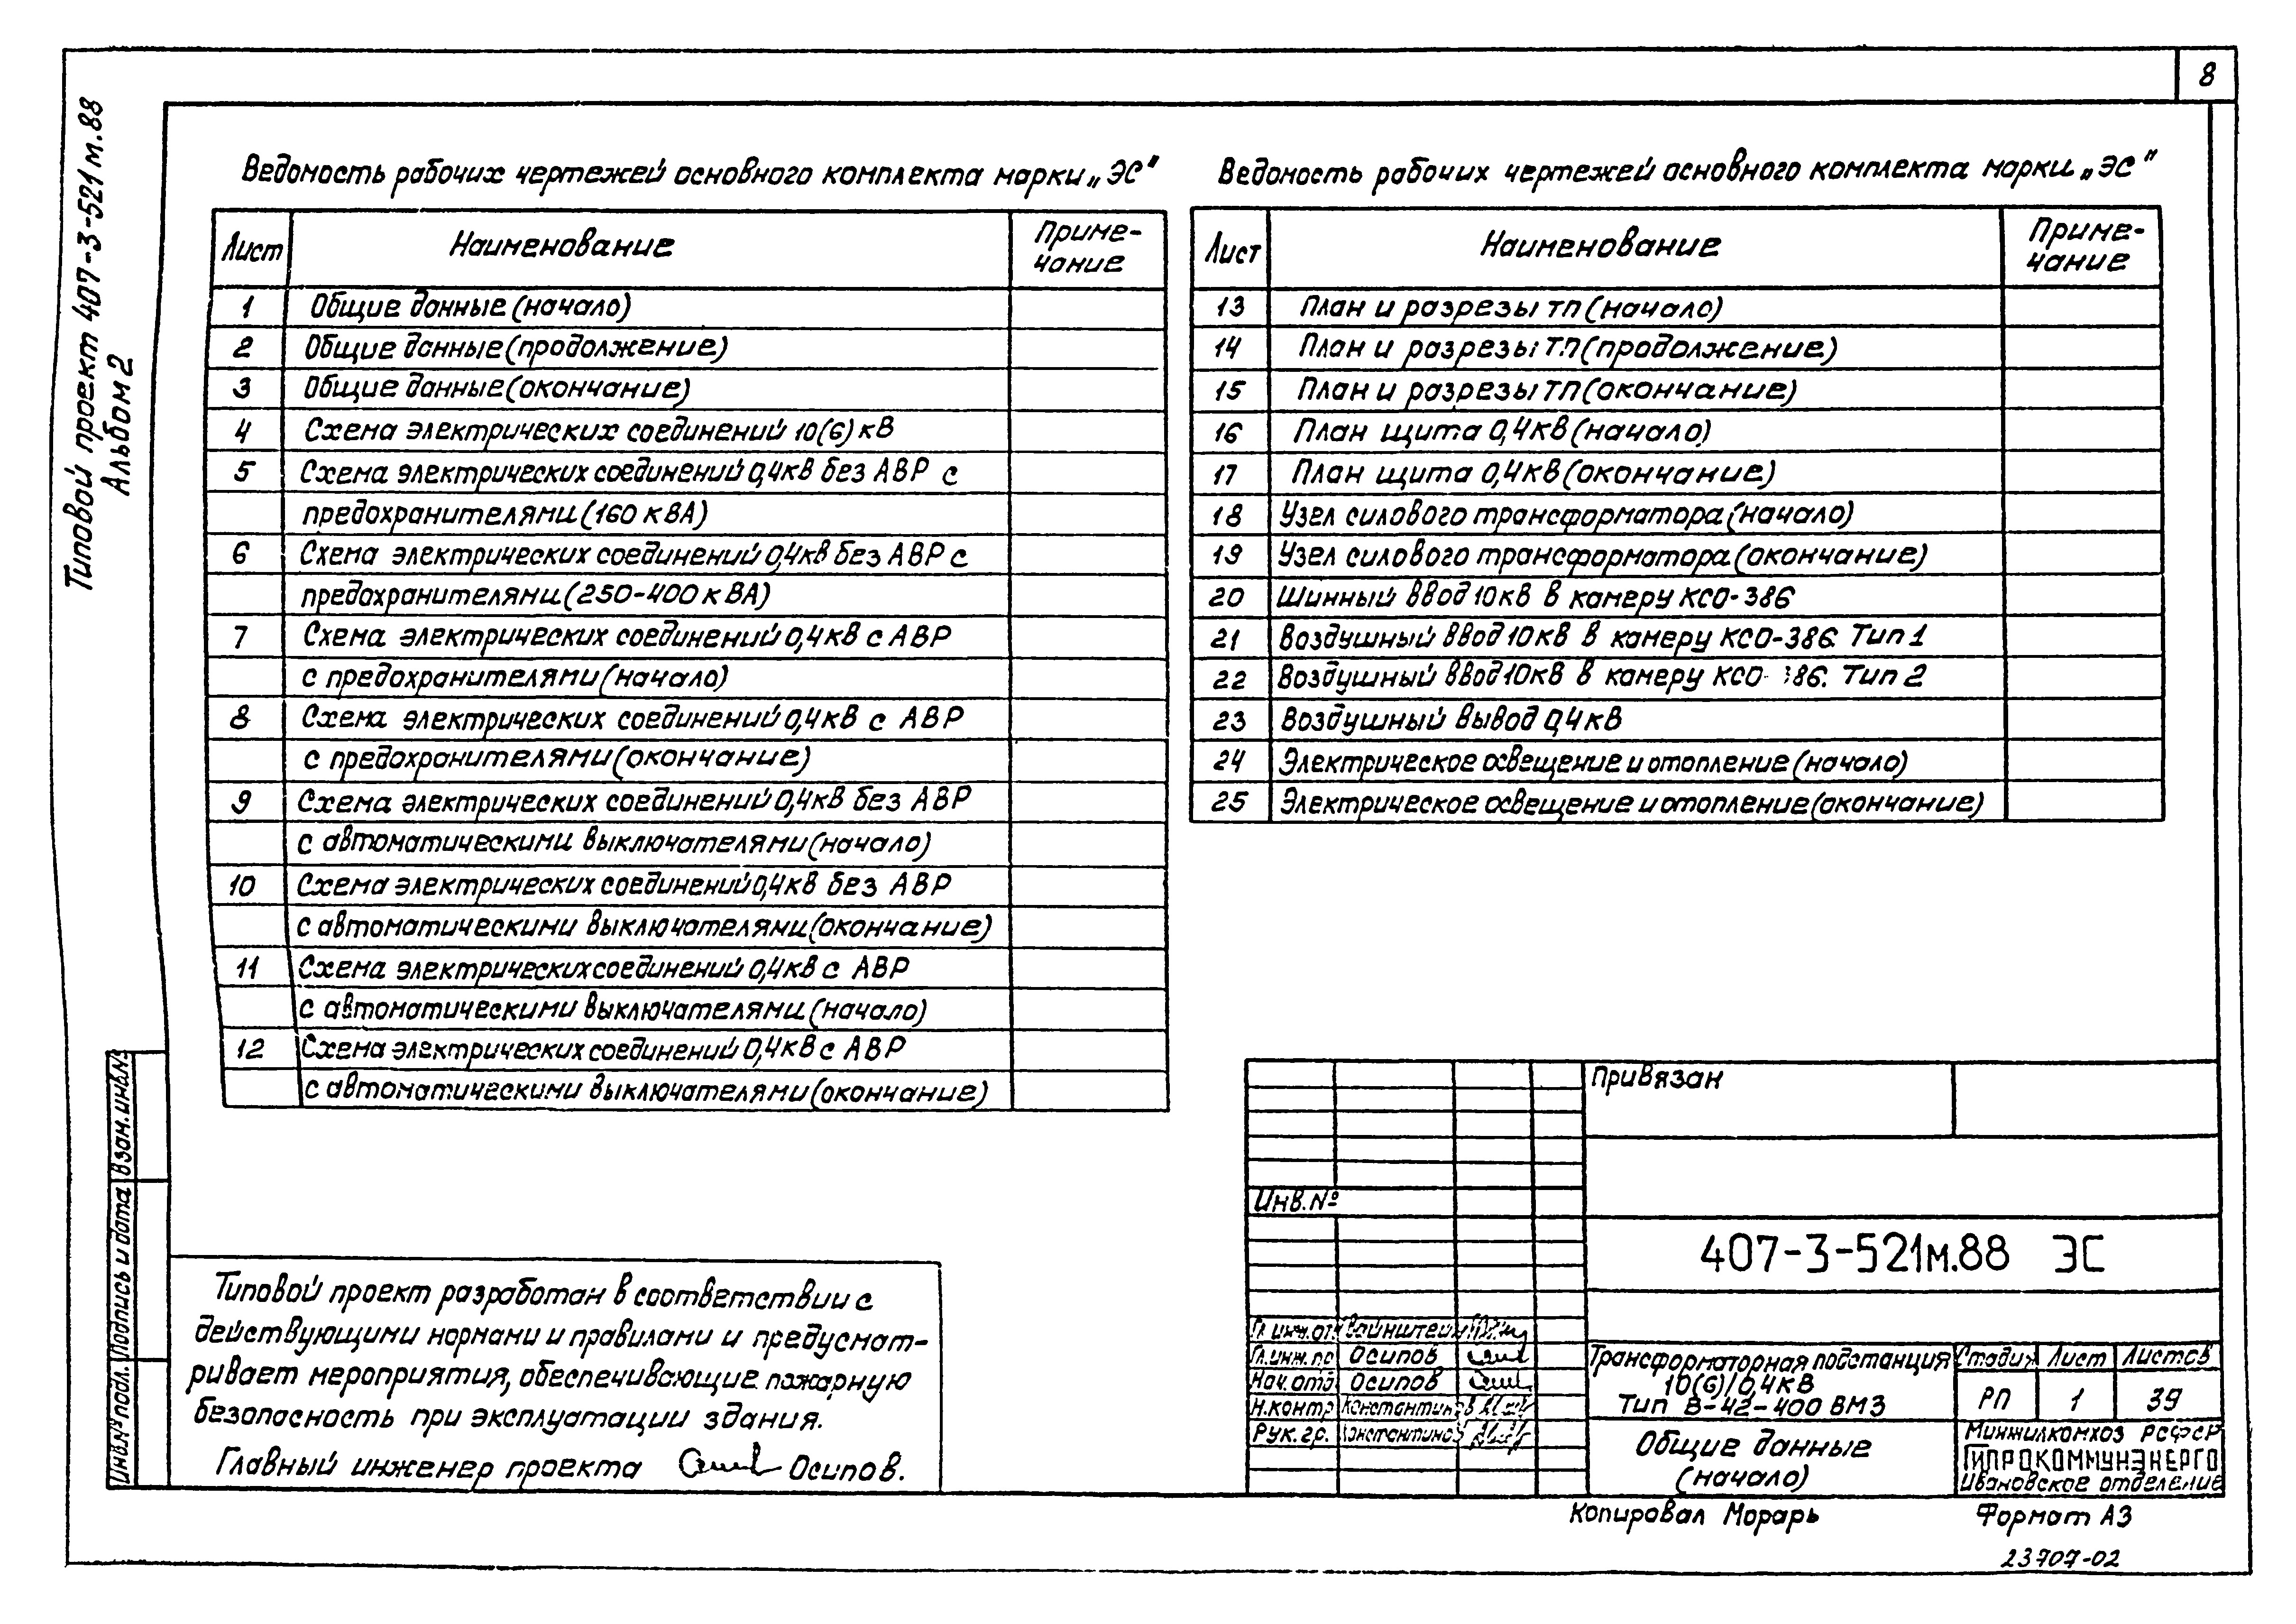 8
Типовой проект 407-3-521м.88
Альбом 2
Ведомость рабочих чертежей основного комплекта марки „ЭС"
Лист Наименование Приме-
чание
1 Общие данные (начало)
2 Общие данные (продолжение)
3 Общие данные (окончание)
4 Схема электрических соединений 10(6) кВ
5 Схема электрических соединений 0,4кВ без АВР с
предохранителями (160 кВА)
6 Схема электрических соединений 0,4кВ без АВР с
предохранителями (250-400 кВА)
7 Схема электрических соединений 0,4кВ с АВР
с предохранителями (начало)
8 Схема электрических соединений 0,4кВ с АВР
с предохранителями (окончание)
9 Схема электрических соединений 0,4кВ без АВР
с автоматическими выключателями (начало)
10 Схема электрических соединений 0,4кВ без АВР
с автоматическими выключателями (окончание)
11 Схема электрических соединений 0,4кВ с АВР
с автоматическими выключателями (начало)
12 Схема электрических соединений 0,4кВ с АВР
с автоматическими выключателями (окончание)
Ведомость рабочих чертежей основного комплекта марки „ЭС"
Лист Наименование Приме-
чание
13 План и разрезы ТП (начало)
14 План и разрезы ТП (продолжение)
15 План и разрезы ТП (окончание)
16 План щита 0,4кВ (начало)
17 План щита 0,4кВ (окончание)
18 Узел силового трансформатора (начало)
19 Узел силового трансформатора (окончание)
20 Шинный ввод 10кВ в камеру КСО-386
21 Воздушный ввод 10кВ в камеру КСО-386. Тип 1
22 Воздушный ввод 10кВ в камеру КСО-386. Тип 2
23 Воздушный вывод 0,4кВ
24 Электрическое освещение и отопление (начало)
25 Электрическое освещение и отопление (окончание)
Типовой проект разработан в соответствии с
действующими нормами и правилами и предусмат-
ривает мероприятия, обеспечивающие пожарную
безопасность при эксплуатации здания.
Главный инженер проекта Осипов.
Инв.№подл. Подпись и дата Взам.инв.№
Привязан
Инв.№
407-3-521м.88 ЭС
Гл.инж.от. Вайнштейн
Гл.инж.пр Осипов
Нач.отд Осипов
Н.контр Константинов
Рук.гр. Константинов
Трансформаторная подстанция
10(6)/0,4кВ
Тип В-42-400 ВМЗ
Стадия Лист Листов
РП 1 39
Общие данные
(начало)
Минжилкомхоз РСФСР
ГИПРОКОММУНЭНЕРГО
Ивановское отделение
Копировал Морарь Формат А3
23707-02